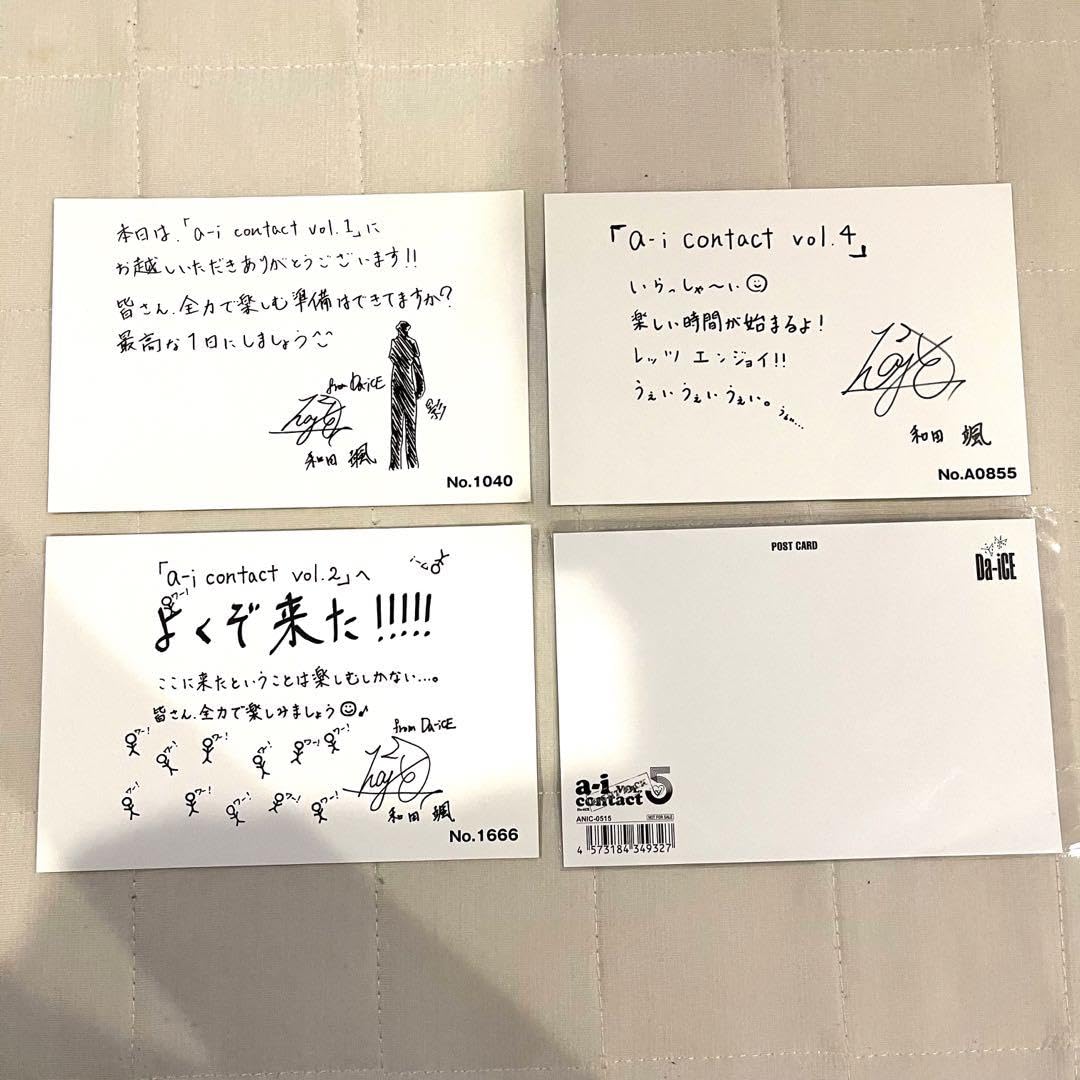 本日は、「a-i contact vol.1」に
お越しいただきありがとうございます!!
皆さん、全力で楽しむ準備はできてますか?
最高な1日にしましょう^^
from Da-iCE
影
和田 颯
No.1040
「a-i contact vol.4」
いらっしゃ〜い
楽しい時間が始まるよ!
レッツ エンジョイ!!
うぇいうぇいうぇい。
和田 颯
No.A0855
「a-i contact vol.2」へ
よくぞ来た!!!!!
ここに来たということは楽しむしかない...。
皆さん、全力で楽しみましょう♪
from Da-iCE
ワー! ワー! ワー! ワー! ワー! ワー!
ワー! ワー! ワー! ワー! ワー!
和田 颯
No.1666
POST CARD
Da-iCE
a-i contact vol. 5
ANIC-0515
NOT FOR SALE
4 573184 349327